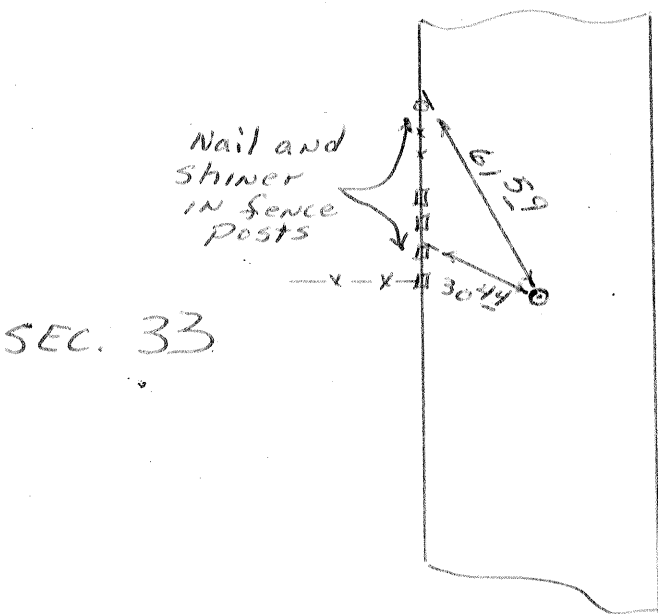 Nail and
shiner
in fence
posts
61 59
30 44
SEC. 33